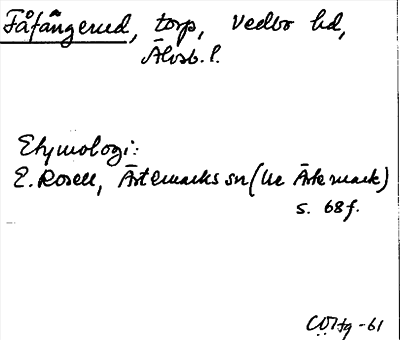 Fåfängerud, torp, Vedbo hd,
Älvsb. l.
Etymologi:
E. Rosell, Ärtemarks sn (he Ärtemark)
s. 68 f.
-61